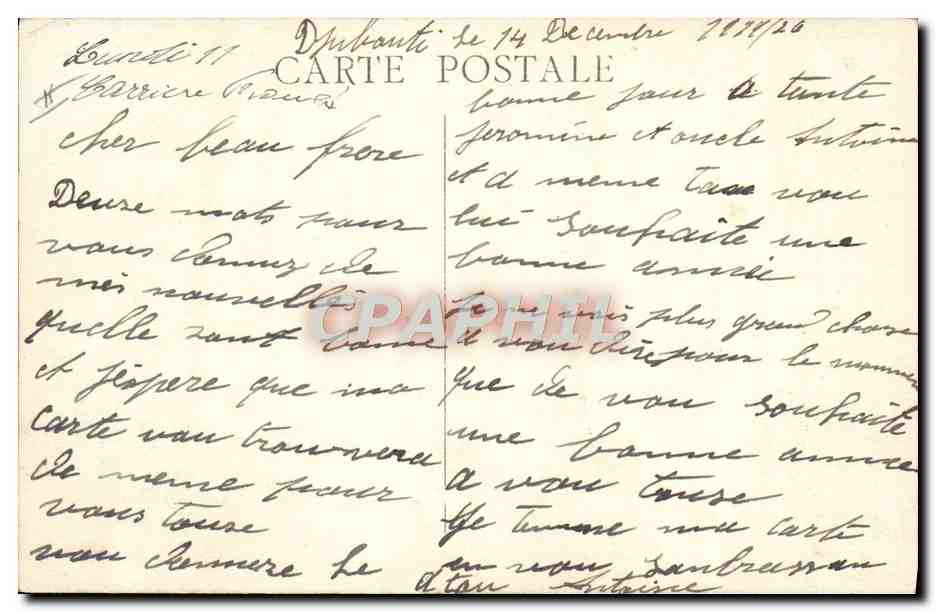 Djibouti le 14 Decembre
CARTE POSTALE
cher beau frere
Deuze mots pour
vous donnez de
mes nouvelles
quelle sont bonne
et j'espere que ma
carte vou trouvera
de meme pour
vous touse
vou donnere le
bonne jour a tante
jeromine et oncle Antoine
et a meme tan vou
lui souhaite une
bonne année
je ne vois plus grand chose
a vou dire pour le moment
que de vou souhaite
une bonne année
a vou touse
je termine ma carte
en vou
Antoine
CPAPHIL